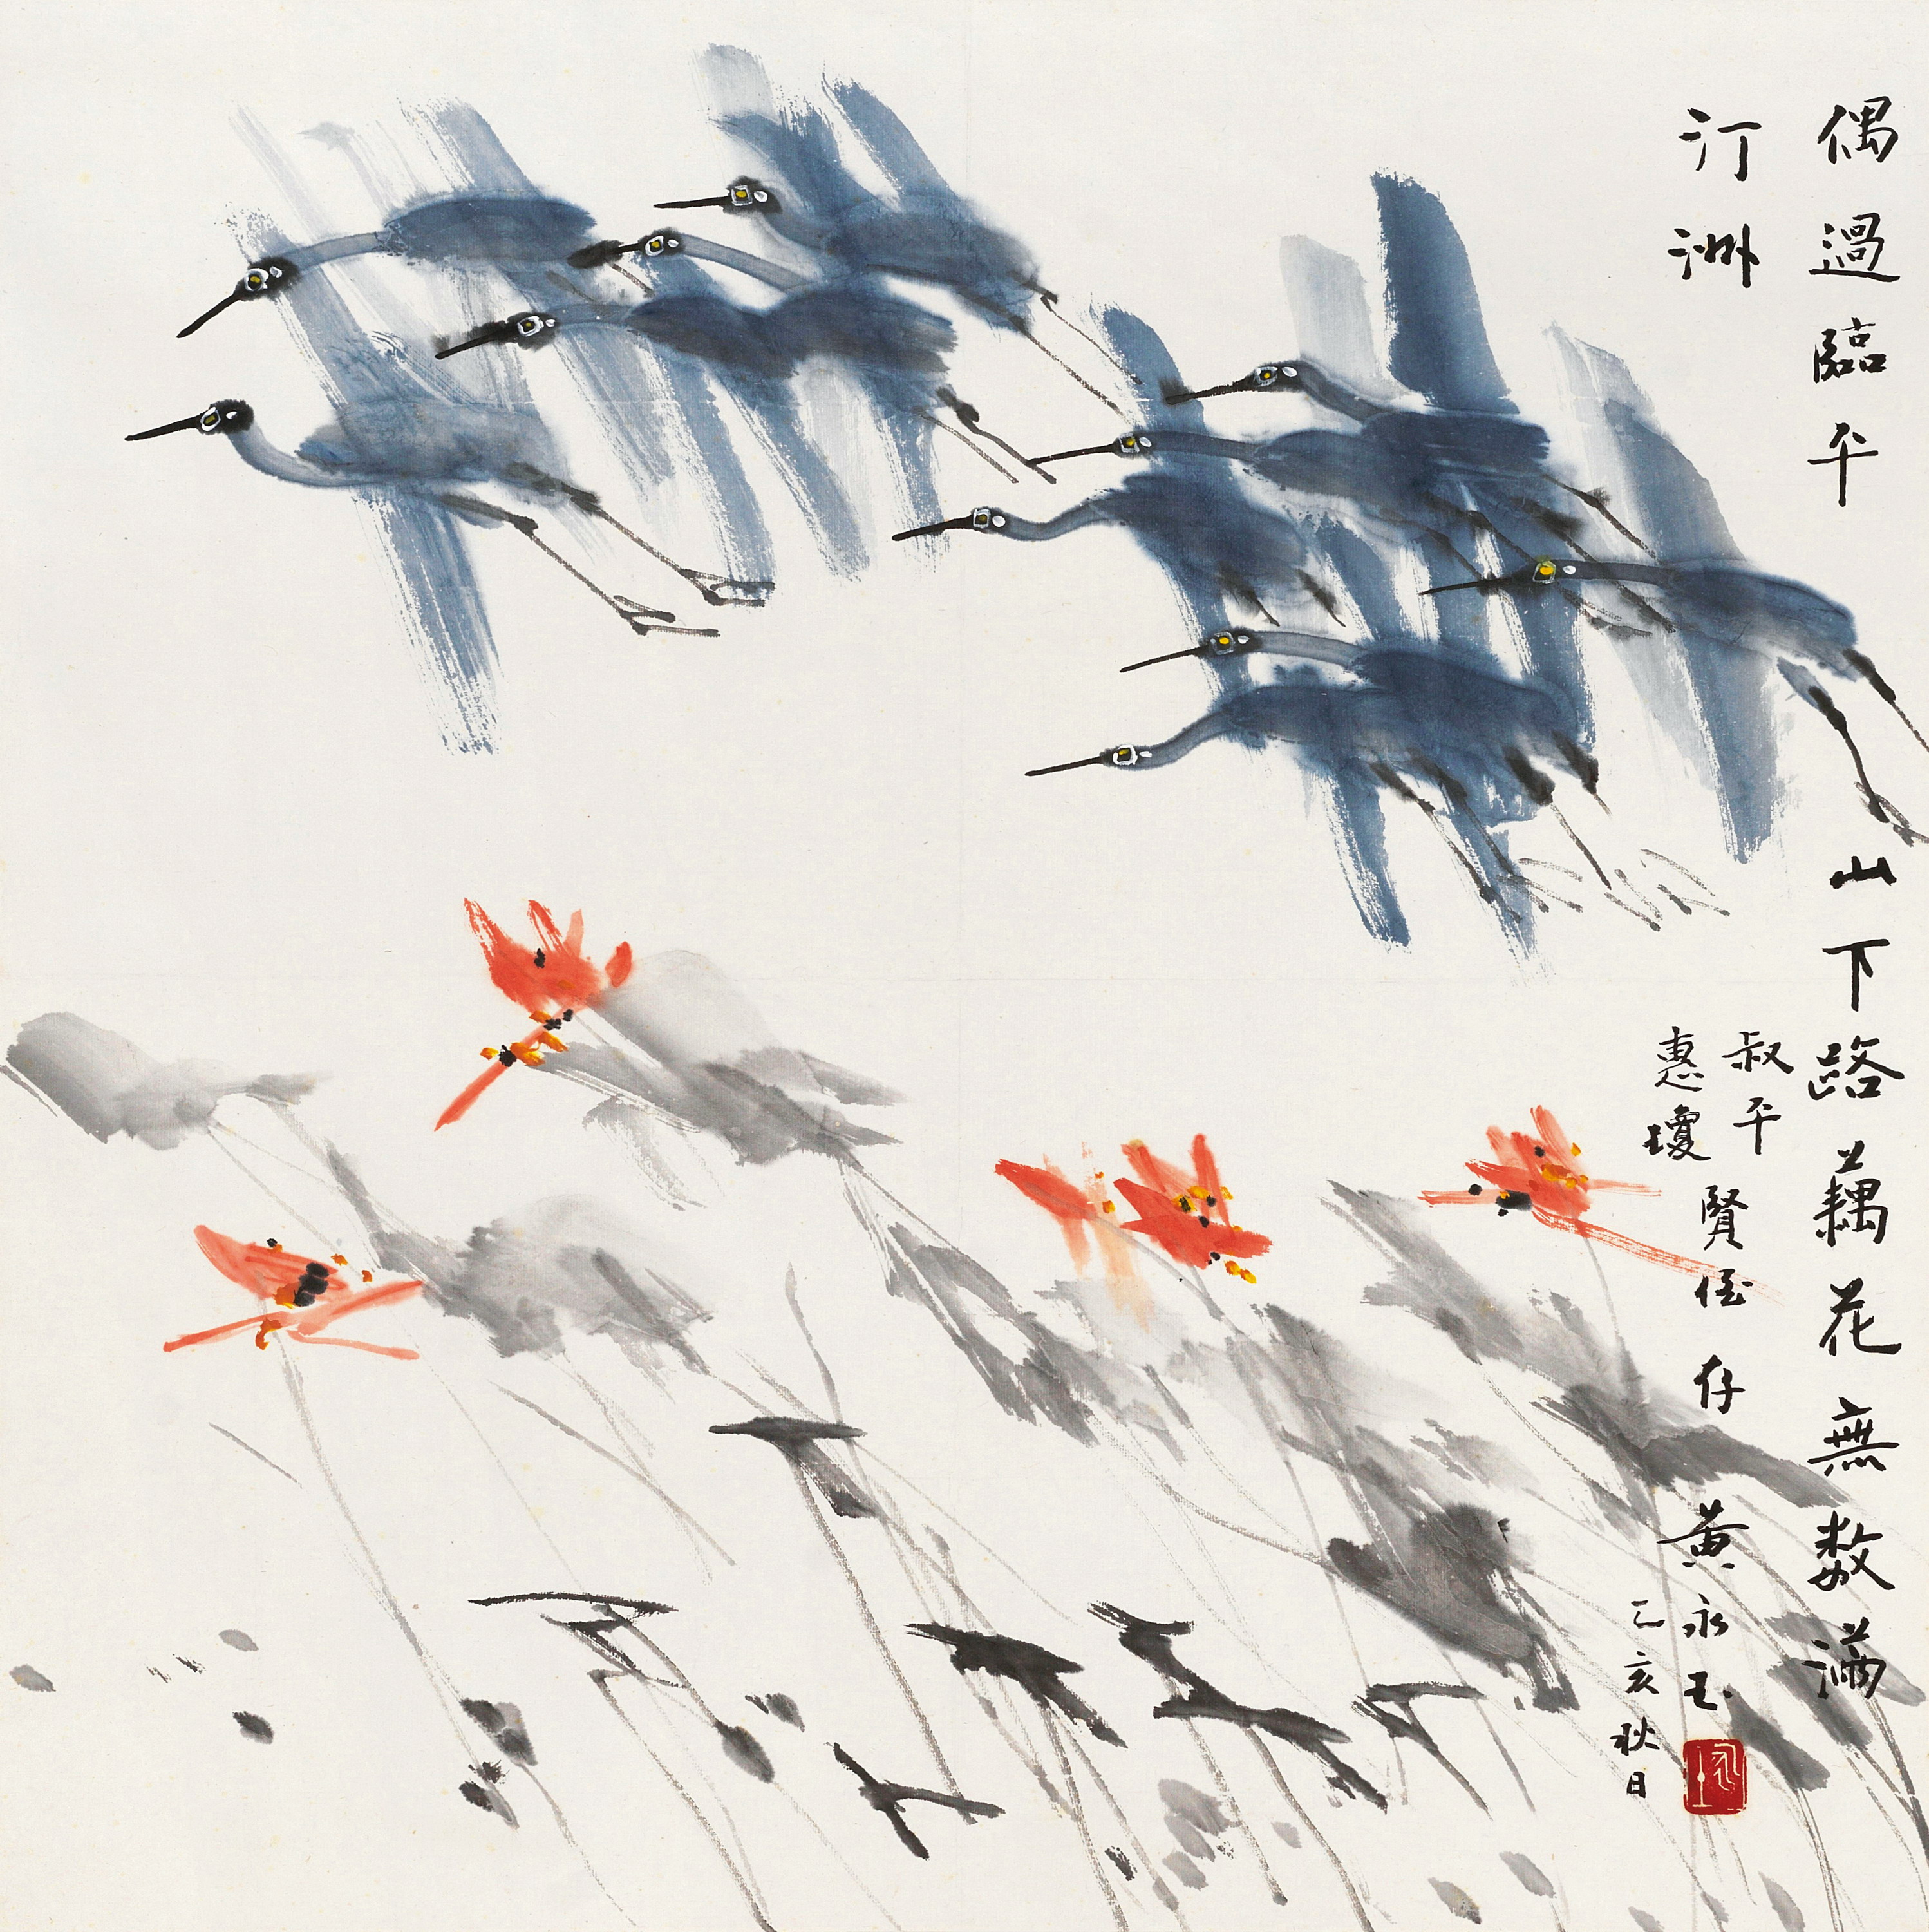 偶過臨平山下路藕花無數滿
汀洲
叔平
惠瓊
賢侄存
黃永玉
乙亥秋日